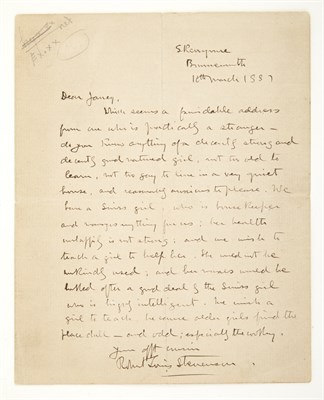 Skerryvore
Bournemouth
16th March 1887
Dear Janey,
This seems a formidable address
from one who is practically a stranger —
do you know anything of a decently strong and
decently good natured girl, not too old to
learn, not too gay to live in a very quiet
house, and reasonably anxious to please. We
have a Swiss girl, who is housekeeper
and manages everything for us; her health
unhappily is not strong; and we wish to
teach a girl to help her. She would not be
unkindly used; and her meals would be
looked after a good deal by the Swiss girl
who is highly intelligent. We wish a
girl to teach because older girls find the
place dull — and odd; especially the
Your afft cousin
Robert Louis Stevenson.